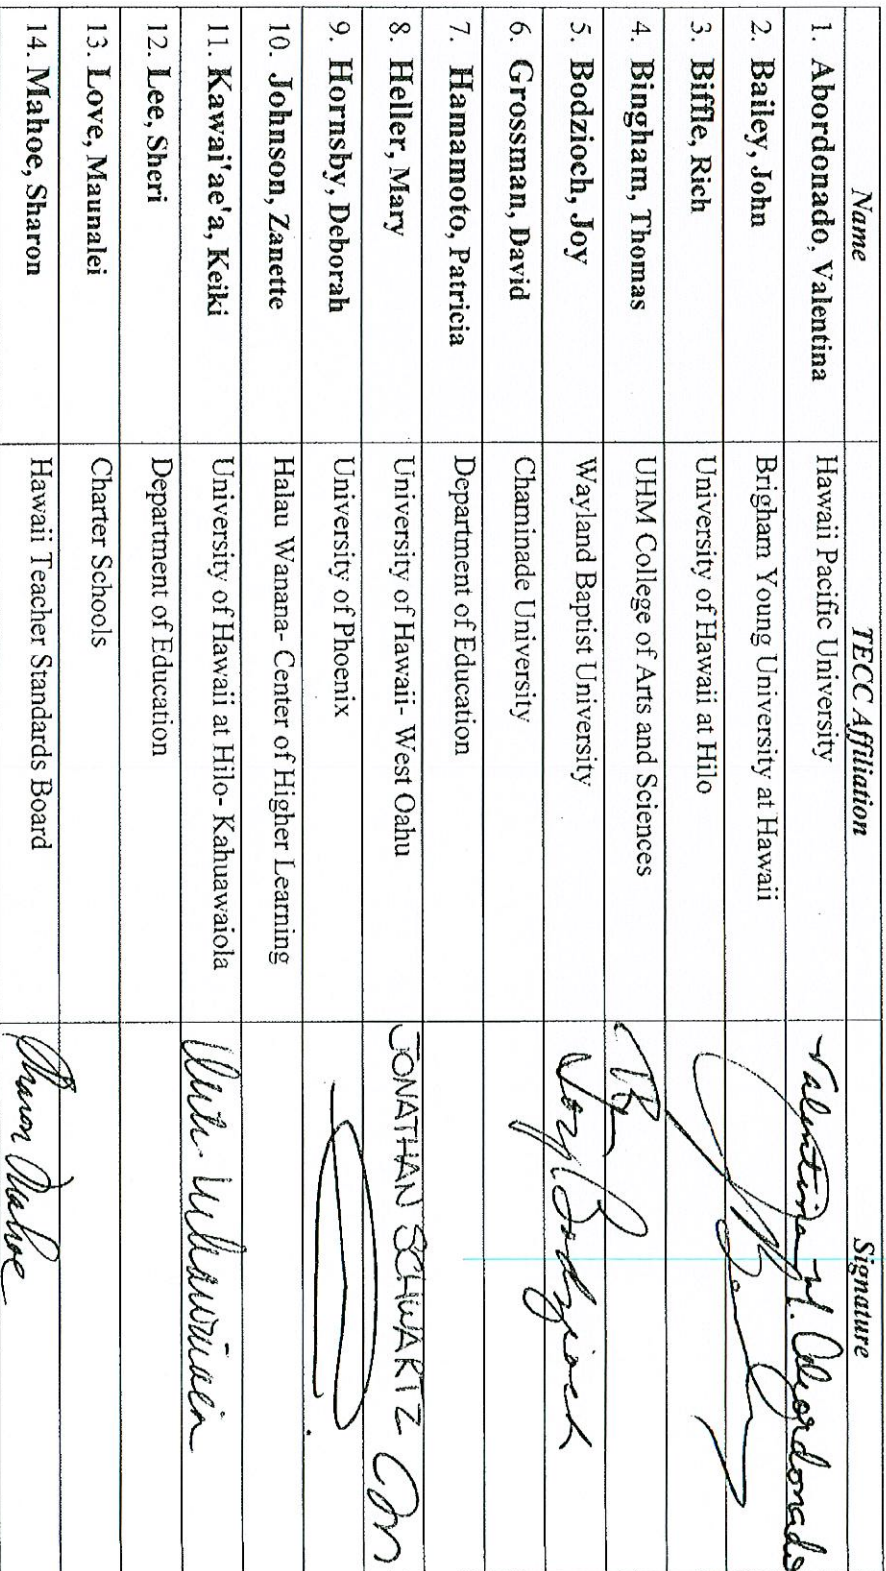 Name TECC Affiliation Signature
1. Abordonado, Valentina Hawaii Pacific University Valentina M. Abordonado
2. Bailey, John Brigham Young University at Hawaii
3. Biffle, Rich University of Hawaii at Hilo
4. Bingham, Thomas UHM College of Arts and Sciences
5. Bodzioch, Joy Wayland Baptist University Joy Bodzioch
6. Grossman, David Chaminade University
7. Hamamoto, Patricia Department of Education
8. Heller, Mary University of Hawaii- West Oahu JONATHAN SCHWARTZ
9. Hornsby, Deborah University of Phoenix
10. Johnson, Zanette Halau Wanana- Center of Higher Learning
11. Kawai'ae'a, Keiki University of Hawaii at Hilo- Kahuawaiola
12. Lee, Sheri Department of Education
13. Love, Maunalei Charter Schools
14. Mahoe, Sharon Hawaii Teacher Standards Board Sharon Mahoe